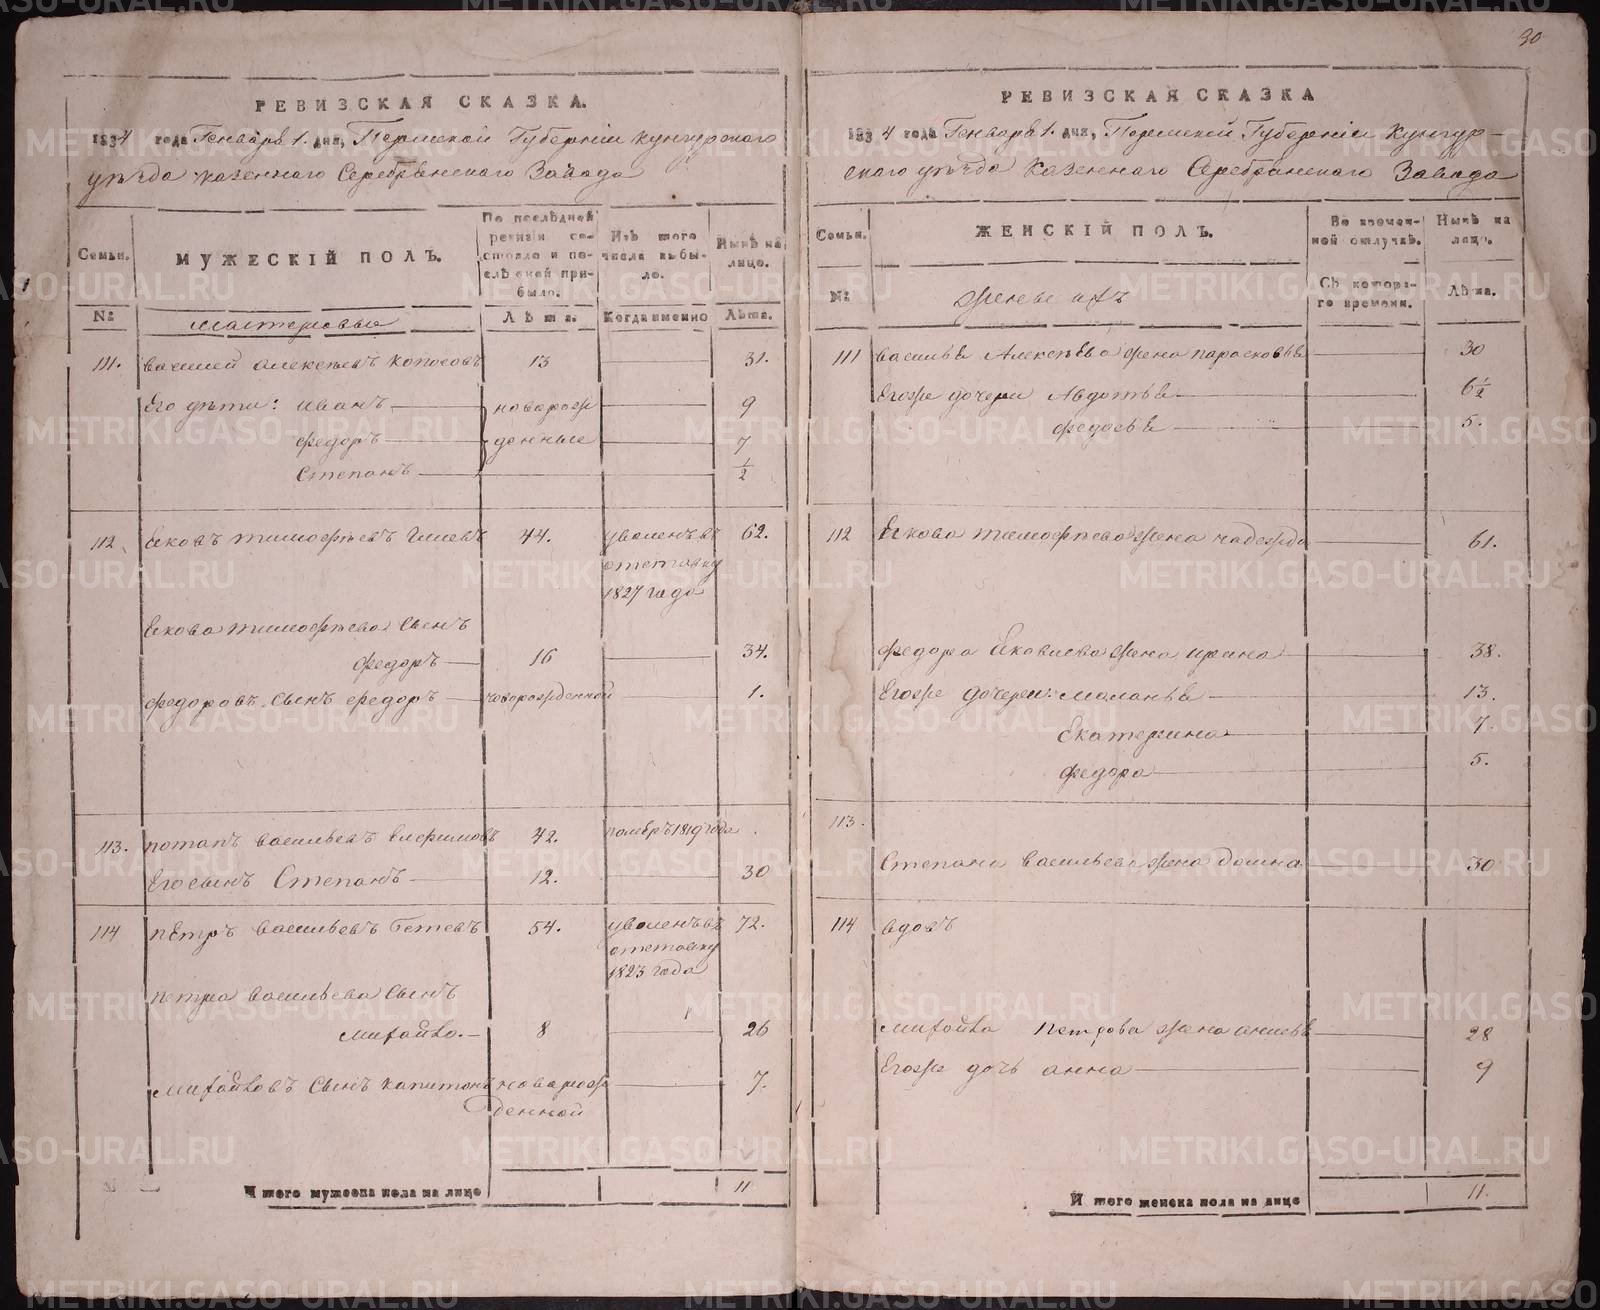 30
РЕВИЗСКАЯ СКАЗКА.
1834 года Генваря 1. дня, Пермской Губерніи Кунгурскаго
уѣзда казеннаго Серебрянскаго Завода
Семьи.
МУЖЕСКІЙ ПОЛЪ.
По послѣдней ревизіи состояло и послѣ оной прибыло.
Изъ того числа выбыло.
Нынѣ на лицо.
№
мастеровые
Лѣта.
Когда именно
Лѣта.
111. Василей Алексѣевъ Колосовъ 13 31.
Его дѣти: Иванъ новорож 9
Федоръ денные 7
Степанъ ½
112. Ековъ Тимофѣевъ 44. уволенъ въ 62.
отставку
1827 года
Екова Тимофѣева Сынъ
Федоръ 16 34.
Федоровъ Сынъ Федоръ новорожденной 1.
113. Потапъ Васильевъ 42. 1819 года
Его сынъ Степанъ 12. 30
114 Петръ Васильевъ 54. уволенъ въ 72.
отставку
1823 года
Петра Васильева Сынъ
Михайло. 8 26
Михайловъ Сынъ Капитонъ новорож 7.
денной
Итого мужеска пола на лицо 11
РЕВИЗСКАЯ СКАЗКА
1834 года Генваря 1. дня, Пермской Губерніи Кунгур-
скаго уѣзда Казеннаго Серебрянскаго Завода
Семьи.
ЖЕНСКІЙ ПОЛЪ.
Во временной отлучкѣ.
Нынѣ на лицо.
№
Жены ихъ
Съ котораго времени.
Лѣта.
111 Василья Алексѣева жена Парасковья 30
Егоже дочери Авдотья 6½
Федосья 5.
112 Екова Тимофѣева жена Надежда 61.
Федора Ековлева жена Ирина 38.
Егоже дочери: Маланья 13.
Екатерина 7.
Федора 5.
113.
Степана Васильева жена Домна 30
114 вдовъ
Михайла Петрова жена Анисья 28
Егоже дочь Анна 9
Итого женска пола на лицо 11.
METRIKI.GASO-URAL.RU